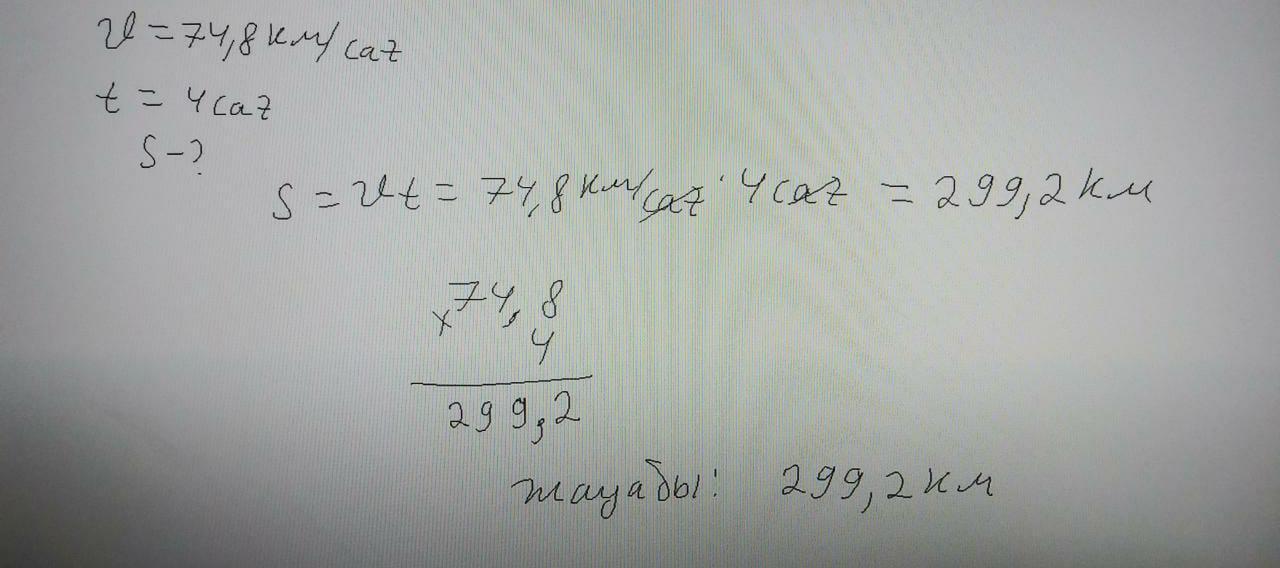 v = 74,8 км/саг
t = 4 саг
S - ?
S = vt = 74,8 км/саг · 4 саг = 299,2 км
74,8
× 4
299,2
жауабы: 299,2 км